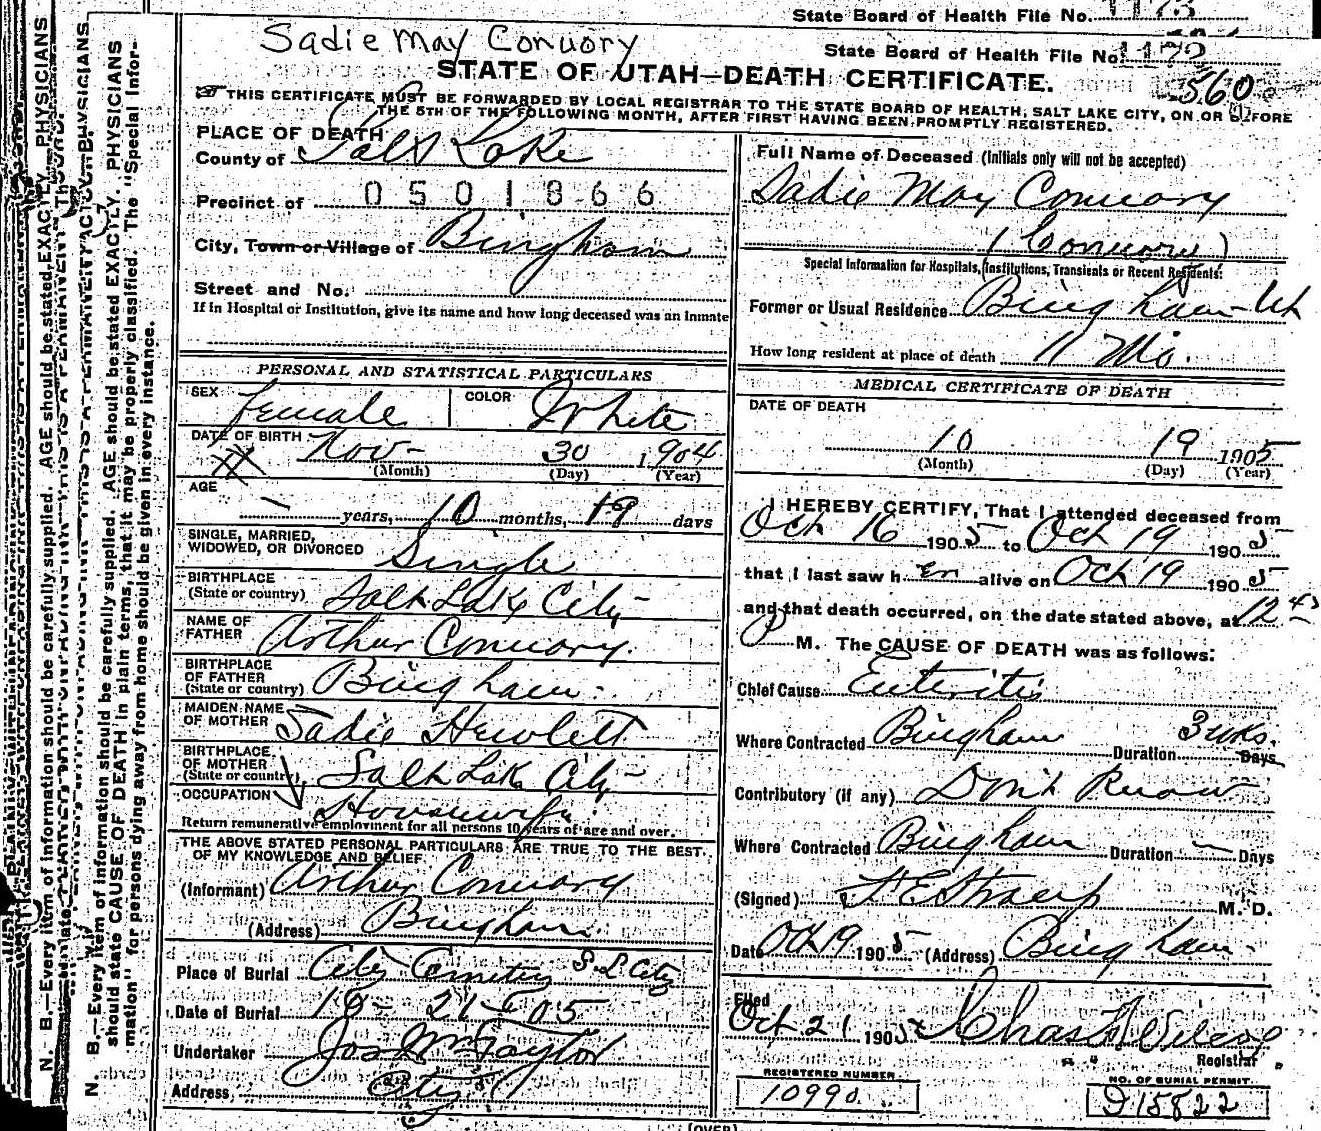 State Board of Health File No. 1173
Sadie May Conuory
State Board of Health File No. 1172
STATE OF UTAH—DEATH CERTIFICATE.
560
THIS CERTIFICATE MUST BE FORWARDED BY LOCAL REGISTRAR TO THE STATE BOARD OF HEALTH, SALT LAKE CITY, ON OR BEFORE
THE 5TH OF THE FOLLOWING MONTH, AFTER FIRST HAVING BEEN PROMPTLY REGISTERED.
PLACE OF DEATH
County of Salt Lake
Precinct of 0501866
City, Town or Village of Bingham
Street and No.
If in Hospital or Institution, give its name and how long deceased was an inmate
PERSONAL AND STATISTICAL PARTICULARS
SEX Female COLOR White
DATE OF BIRTH Nov- 30 1904
(Month) (Day) (Year)
AGE
— years, 10 months, 19 days
SINGLE, MARRIED,
WIDOWED, OR DIVORCED Single
BIRTHPLACE
(State or country) Salt Lake City-
NAME OF
FATHER Arthur Conuory.
BIRTHPLACE
OF FATHER
(State or country) Bingham-
MAIDEN NAME
OF MOTHER Sadie Hewlett
BIRTHPLACE
OF MOTHER
(State or country) Salt Lake City-
OCCUPATION Housewife
Return remunerative employment for all persons 10 years of age and over.
THE ABOVE STATED PERSONAL PARTICULARS ARE TRUE TO THE BEST
OF MY KNOWLEDGE AND BELIEF.
(Informant) Arthur Conuory
(Address) Bingham.
Place of Burial City Cemetery S. L. City
Date of Burial 10- 21- 05
Undertaker Jos Wm Taylor
Address, City
Full Name of Deceased (Initials only will not be accepted)
Sadie May Conuory
(Conuory)
Special Information for Hospitals, Institutions, Transients or Recent Residents:
Former or Usual Residence Bingham-Ut
How long resident at place of death 11 Mo.
MEDICAL CERTIFICATE OF DEATH
DATE OF DEATH
10 19 1905
(Month) (Day) (Year)
I HEREBY CERTIFY, That I attended deceased from
Oct 16 1905 to Oct 19 1905
that I last saw her alive on Oct 19 1905
and that death occurred, on the date stated above, at 12 45
P M. The CAUSE OF DEATH was as follows:
Chief Cause Enteritis
Where Contracted Bingham Duration 3 wks. Days
Contributory (if any) Don't Know
Where Contracted Bingham Duration — Days
(Signed) F. E. Straup M. D.
Date Oct 19 1905 (Address) Bingham-
Filed
Oct 21 1905 Chas H Wilcox
Registrar
REGISTERED NUMBER
10990
NO. OF BURIAL PERMIT
D15822
(OVER)
N. B.—Every item of information should be carefully supplied. AGE should be stated EXACTLY. PHYSICIANS
N. B.—Every item of information should be carefully supplied. AGE should be stated EXACTLY. PHYSICIANS
should state CAUSE OF DEATH in plain terms, that it may be properly classified. The "Special Infor-
mation" for persons dying away from home should be given in every instance.